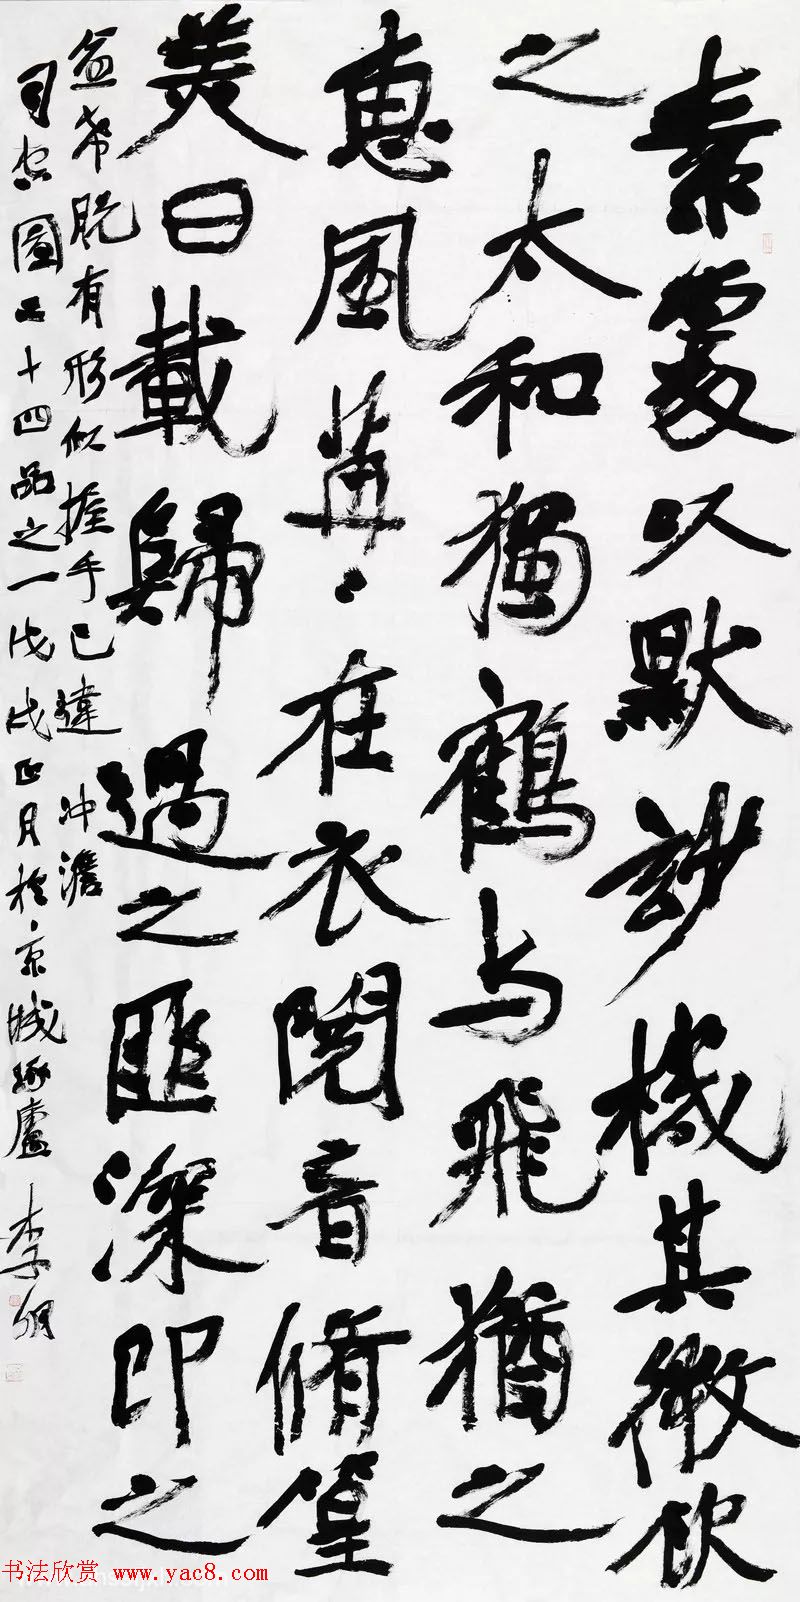 素處以默玅機其微飲
之太和獨鶴与飛猶之
惠風苒々在衣閱音脩篁
美曰載歸遇之匪深即之
愈希脫有形似握手已違 冲澹
司空圖二十四品之一戊戌正月於京城琢廬 李
书法欣赏 www.yac8.com